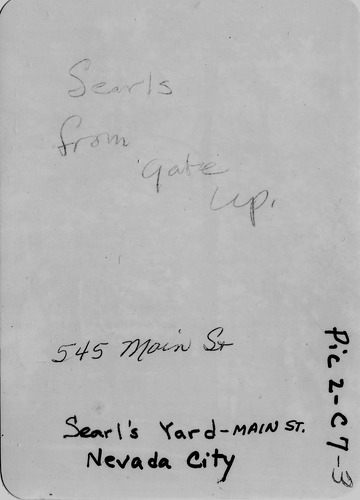 Searls
from
gate
up.
545 Main St
Searl's Yard-MAIN ST.
Nevada City
Pic 2-C 7-3